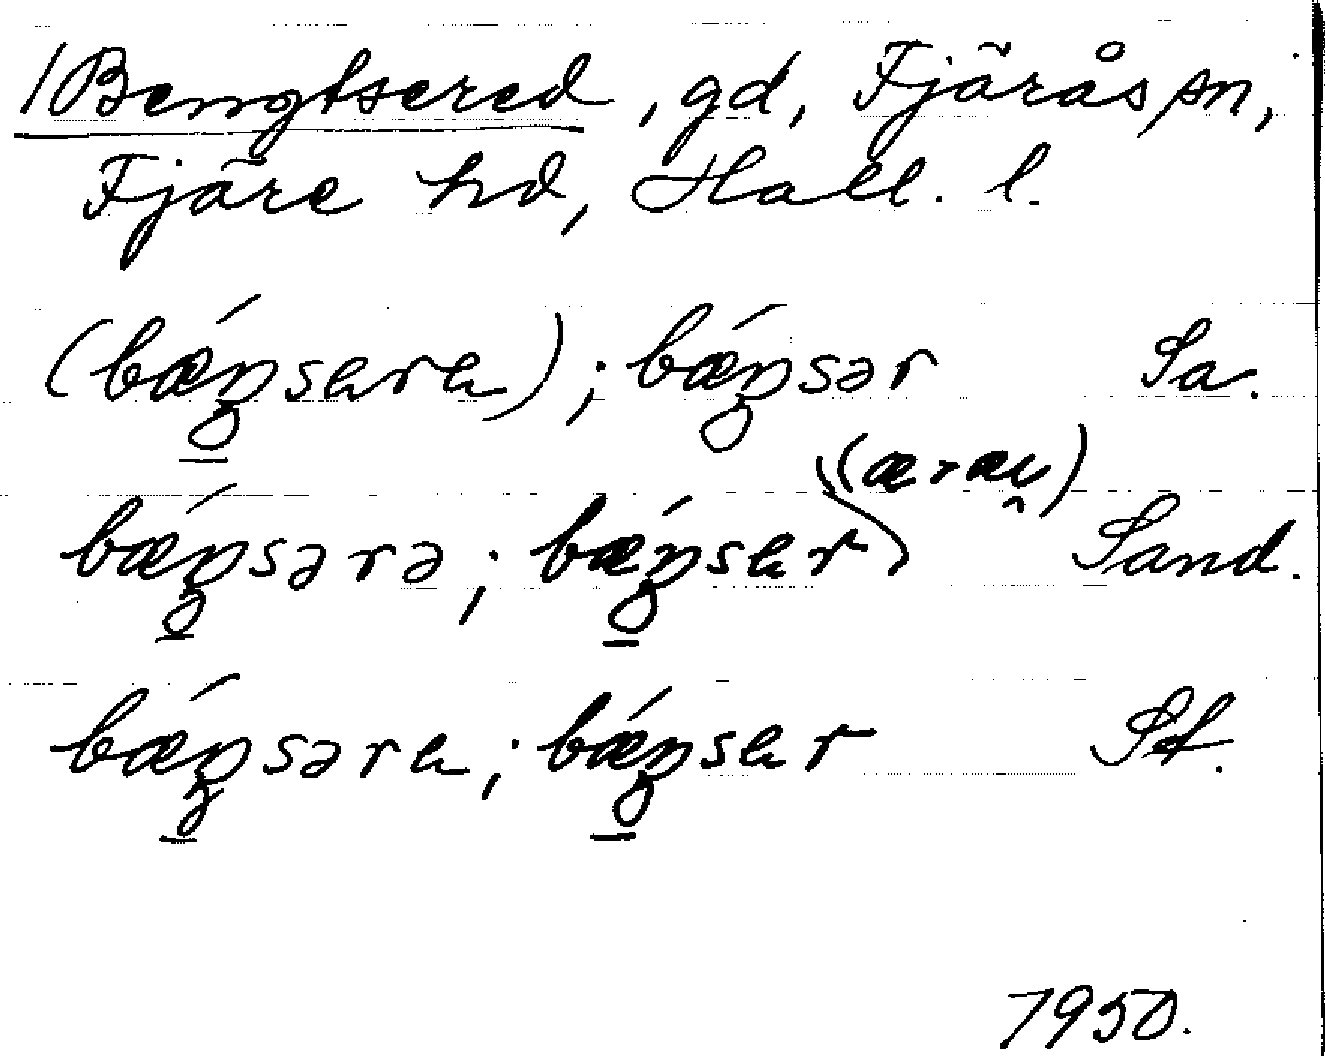 /Bengtsered, gd, Fjärås sn,
Fjäre hd, Hall. l.
(bǽŋsara); bǽŋsər Sa.
(æræu̯)
bæ´ŋsərə; bǽŋsar) Sand.
bǽŋsəra; bǽŋsar St.
1950.